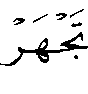 تَجْهَرْ